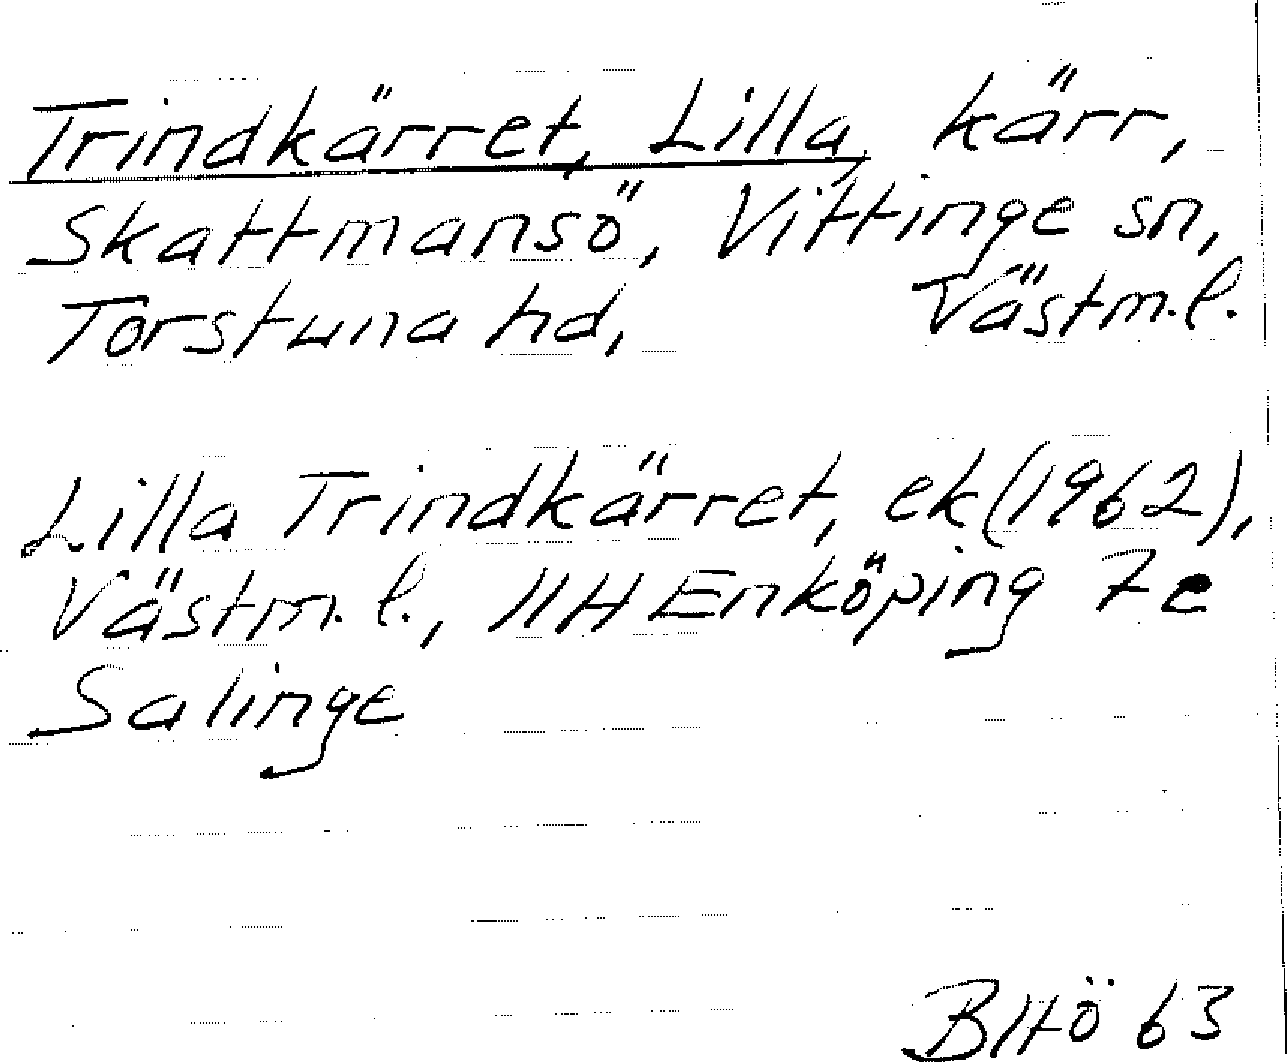 Trindkärret, Lilla, kärr,
Skattmansö, Vittinge sn,
Torstuna hd, Västm.l.
Lilla Trindkärret, ek(1962),
Västm.l., 11H Enköping 7e
Salinge
BHö 63